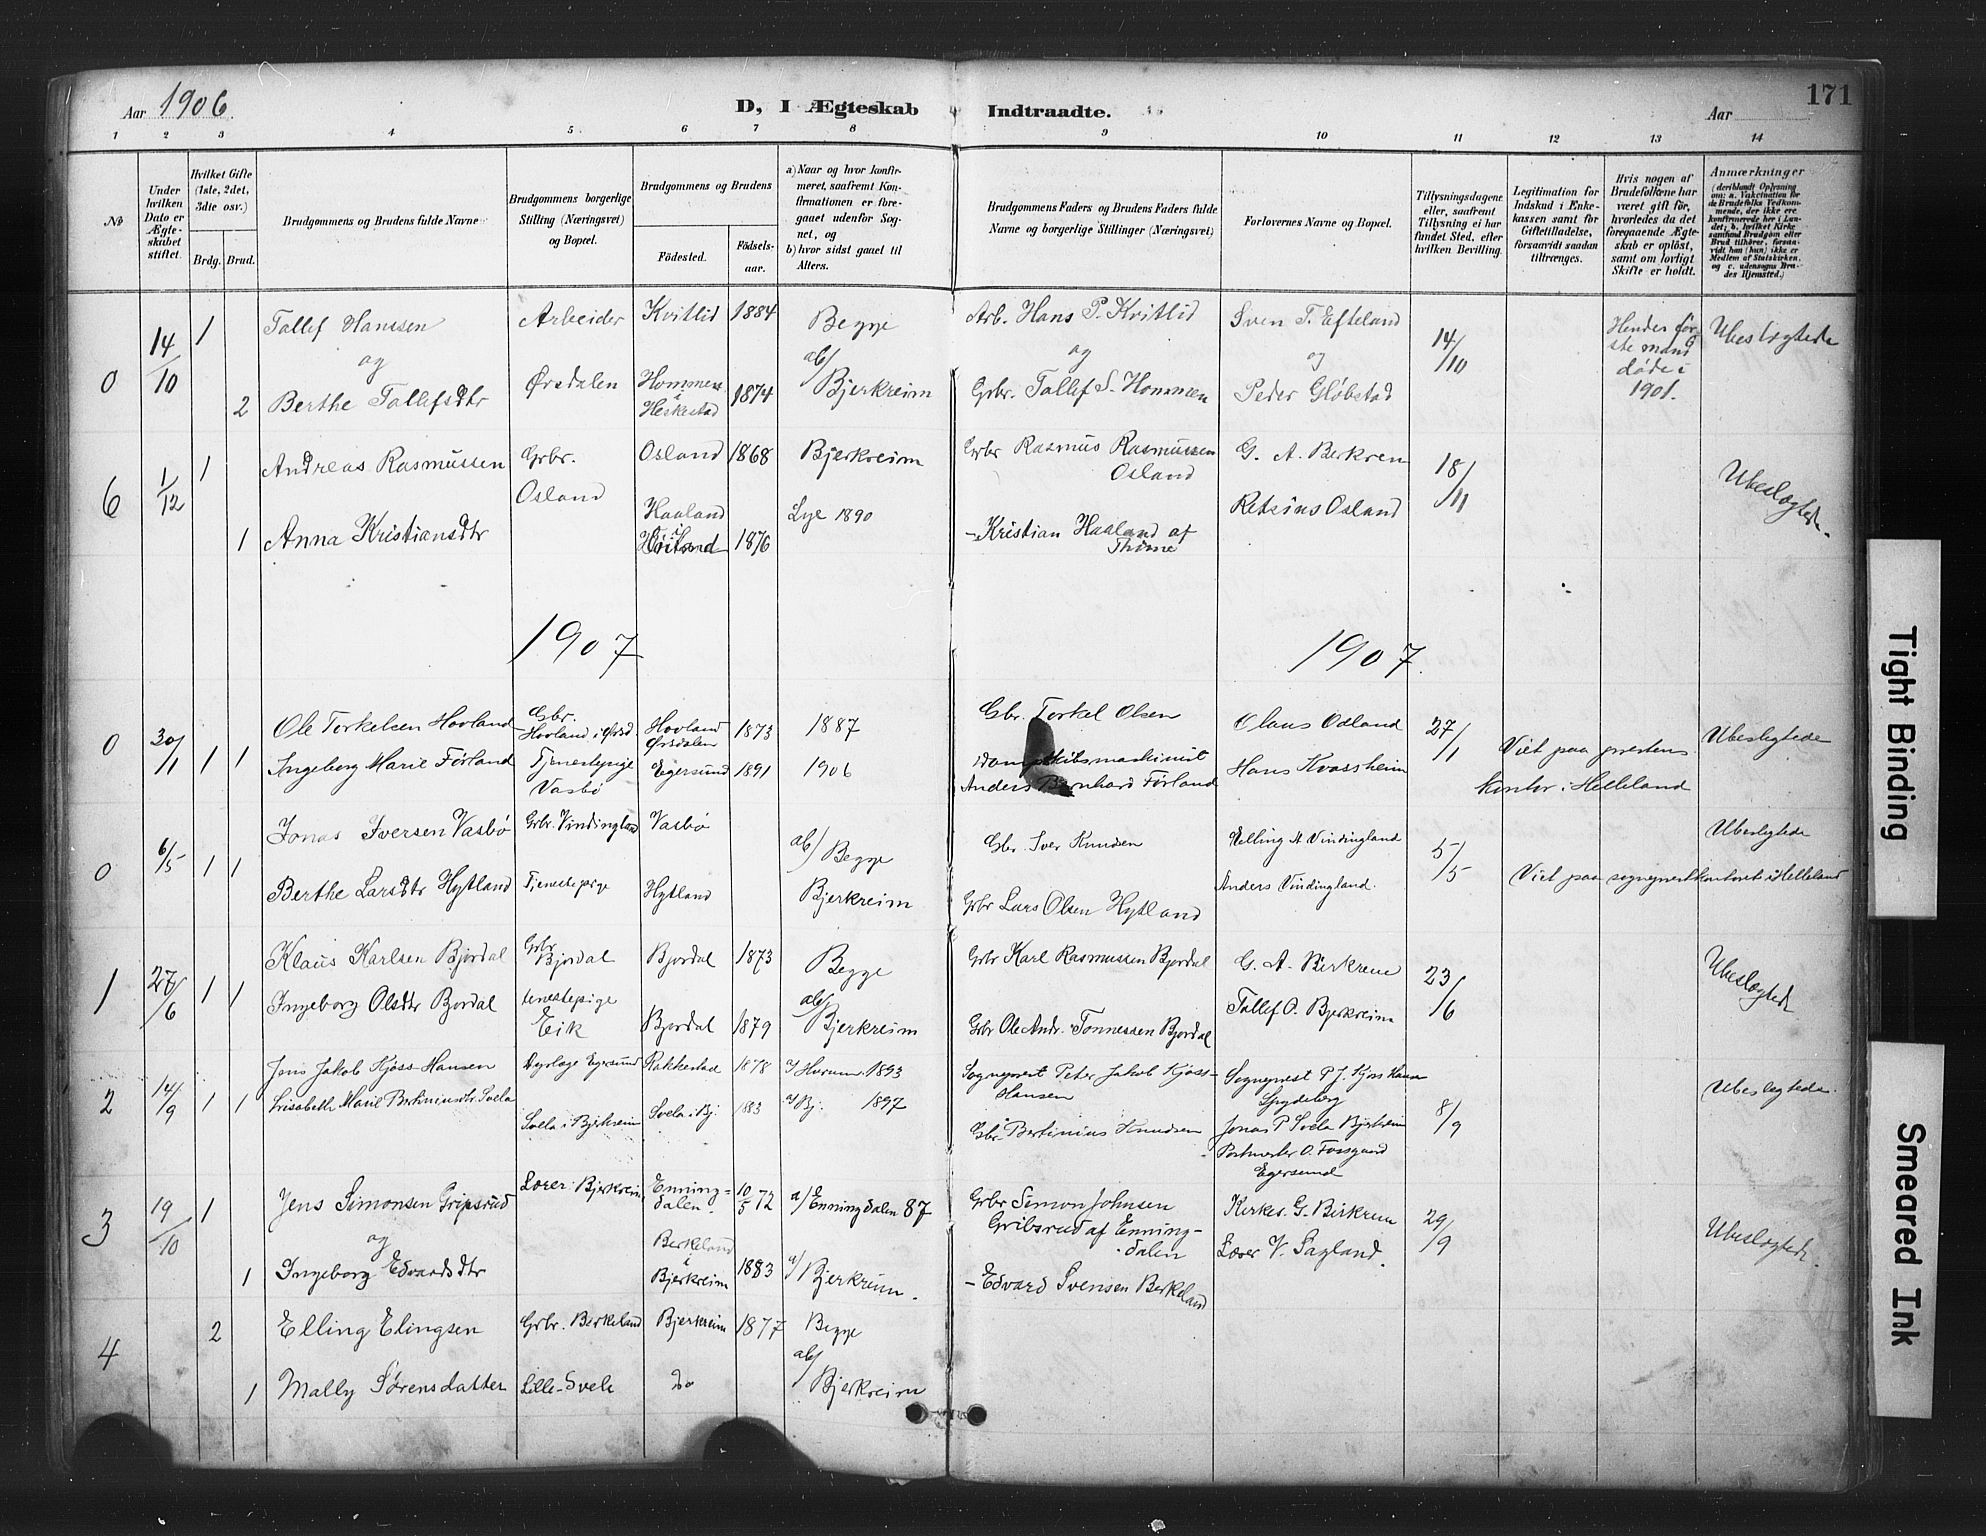 Aar 1906.
D, I Ægteskab Indtraadte.
Aar
171
1 2 3 4 5 6 7 8 9 10 11 12 13 14
No
Under hvilken Dato er Ægteskabet stiftet.
Hvilket Gifte (1ste, 2det, 3dte osv.)
Brdg. Brud.
Brudgommens og Brudens fulde Navne
Brudgommens borgerlige Stilling (Næringsvei) og Bopæl.
Brudgommens og Brudens
Fødested.
Fødselsaar.
a) Naar og hvor konfirmeret, saafremt Konfirmationen er foregaaet udenfor Sognet, og
b) hvor sidst gaaet til Alters.
Brudgommens Faders og Brudens Faders fulde Navne og borgerlige Stillinger (Næringsvei)
Forlovernes Navne og Bopæl.
Tillysningsdagene eller, saafremt Tillysning ei har fundet Sted, efter hvilken Bevilling.
Legitimation for Indskud i Enkekassen samt for Giftetilladelse, forsaavidt saadan tiltrænges.
Hvis nogen af Brudefolkene har været gift før, hvorledes da det foregaaende Ægteskab er opløst, samt om lovligt Skifte er holdt.
Anmærkninger
(deriblandt Oplysning om: a. Vakcination for de Brudefolks Vedkommende, der ikke ere konfirmerede her i Landet; b. hvilket Kirkesamfund Brudgom eller Brud tilhører, forsaavidt han (hun) ikke er Medlem af Statskirken, og c. udensogns Brudes Hjemsted.)
0 14/10 1 Tallef Hanssen Arbeider Kvitlid 1884 Begge Arb. Hans P. Kvitlid Sven T. Efteland 14/10 Hendes første mand døde i 1901. Ubeslægtede
og ab/ og og
2 Berthe Tallefsdtr Ørsdalen Hommen i Heskestad 1874 Bjerkreim Grbr. Tallef S. Hommen Peder Gløbstad
6 1/12 1 Andreas Rasmussen Grbr. Osland Osland 1868 Bjerkreim Grbr Rasmus Rasmussen Osland G. A. Berkren 18/11 Ubeslægtede.
1 Anna Kristiansdtr Haaland i 1876 Lye 1890 - Kristian Haaland af Thime Retsius Osland
1907 1907.
0 30/1 1 1 Ole Torkelsen Hovland Gbr. Hovland i Ørsd. Hovland Ørsdalen 1873 1887 Gbr. Torkel Olsen Claus Odland 27/1 Viet paa prestens Ubeslegtede
Ingeborg Marie Förland Tjenestepige Vasbö Egersund 1891 1906 Anders Bernhard Förland Hans Kvassheim kontor i Helleland
0 6/5 1 1 Jonas Iversen Vasbö Grbr. Vindingland Vasbö ab/ Begge Gbr. Iver Knudsen Velling A Vindingland 5/5 Ubeslegtede
Berthe Larsdtr Hytland Tjenestepige Hytland Bjerkreim Grbr Lars Olsen Hytland Anders Vindingland. Viet paa sogneprestkontoret i Helleland
1 27/6 1 1 Klaus Karlsen Bjordal Grbr Bjordal Bjordal 1873 Begge Grbr Karl Rasmussen Bjordal G. A. Birkrem 23/6 Ubeslægted
Ingeborg Olsdtr Bjordal tenestepige Eik Bjordal 1879 ab/ Bjerkreim Grbr Ole Andr. Tonnessen Bjordal Tallef O. Bjerkreim
2 14/9 1 1 Jens Jakob Kjøss Hansen Dyrlæge Egersund Rakkestad 1878 a/ Hurum 1893 Sogneprest Peter Jakob Kjøss-Hansen Sogneprest P J. Kjoss Hansen Spydeberg 8/9 Ubeslegtede.
Lisabeth Marie Svela Svela i Bjerkreim Svela i Bj. 1883 a/ Bj. 1897 Gbr. Bertinius Knudsen Jonas P Svela Bjerkreim
Postmester O. Fossgaard Egersund
3 19/10 1 Jens Simonsen Gripsrud Lærer i Bjerkreim Enningdalen. 10/5 72 a/ Enningdalen 87 Grbr Simon Johnsen Gribsrud af Enningdalen Kirkes. G. Birkrem 29/9 Ubeslægtede.
og
1 Ingeborg Edvardsdtr Berkeland i Bjerkreim 1883 a/ Bjerkreim. - Edvard Svensen Berkeland Lærer V. Sagland.
4 2 Elling Elingsen Grbr. Berkeland Bjerkreim 1877 Begge
1 Mally Sørensdatter Lille-Svele Do ab/ Bjerkreim
Tight Binding
Smeared Ink